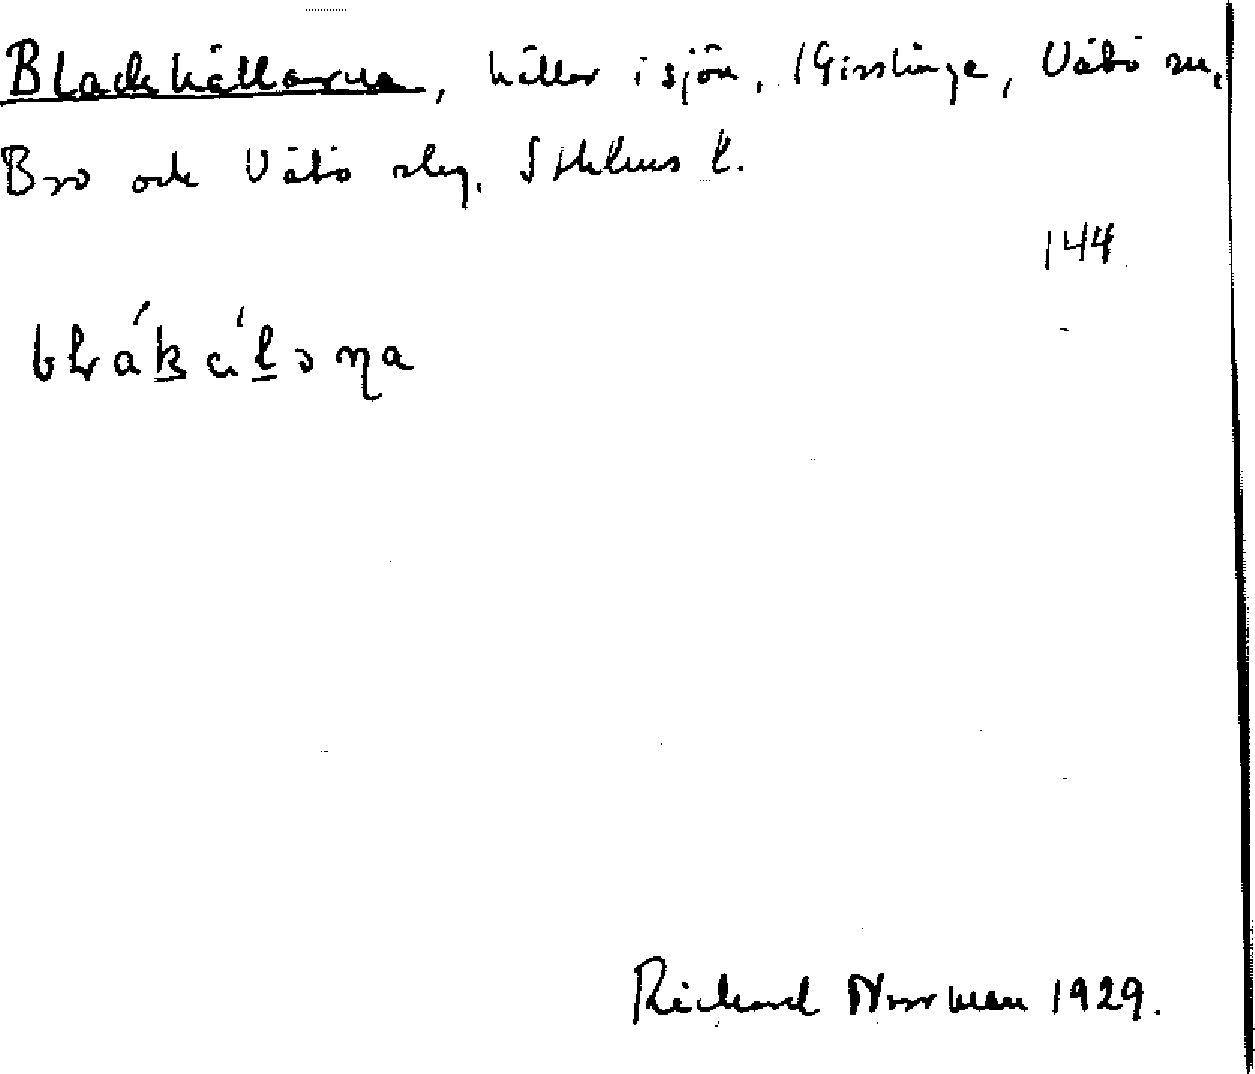 Blackhällarna, hällar i sjön, Gisslinge, Vätö sn,
Bro och Vätö skg, Sthlms l.
144
Richard Norrman 1929.